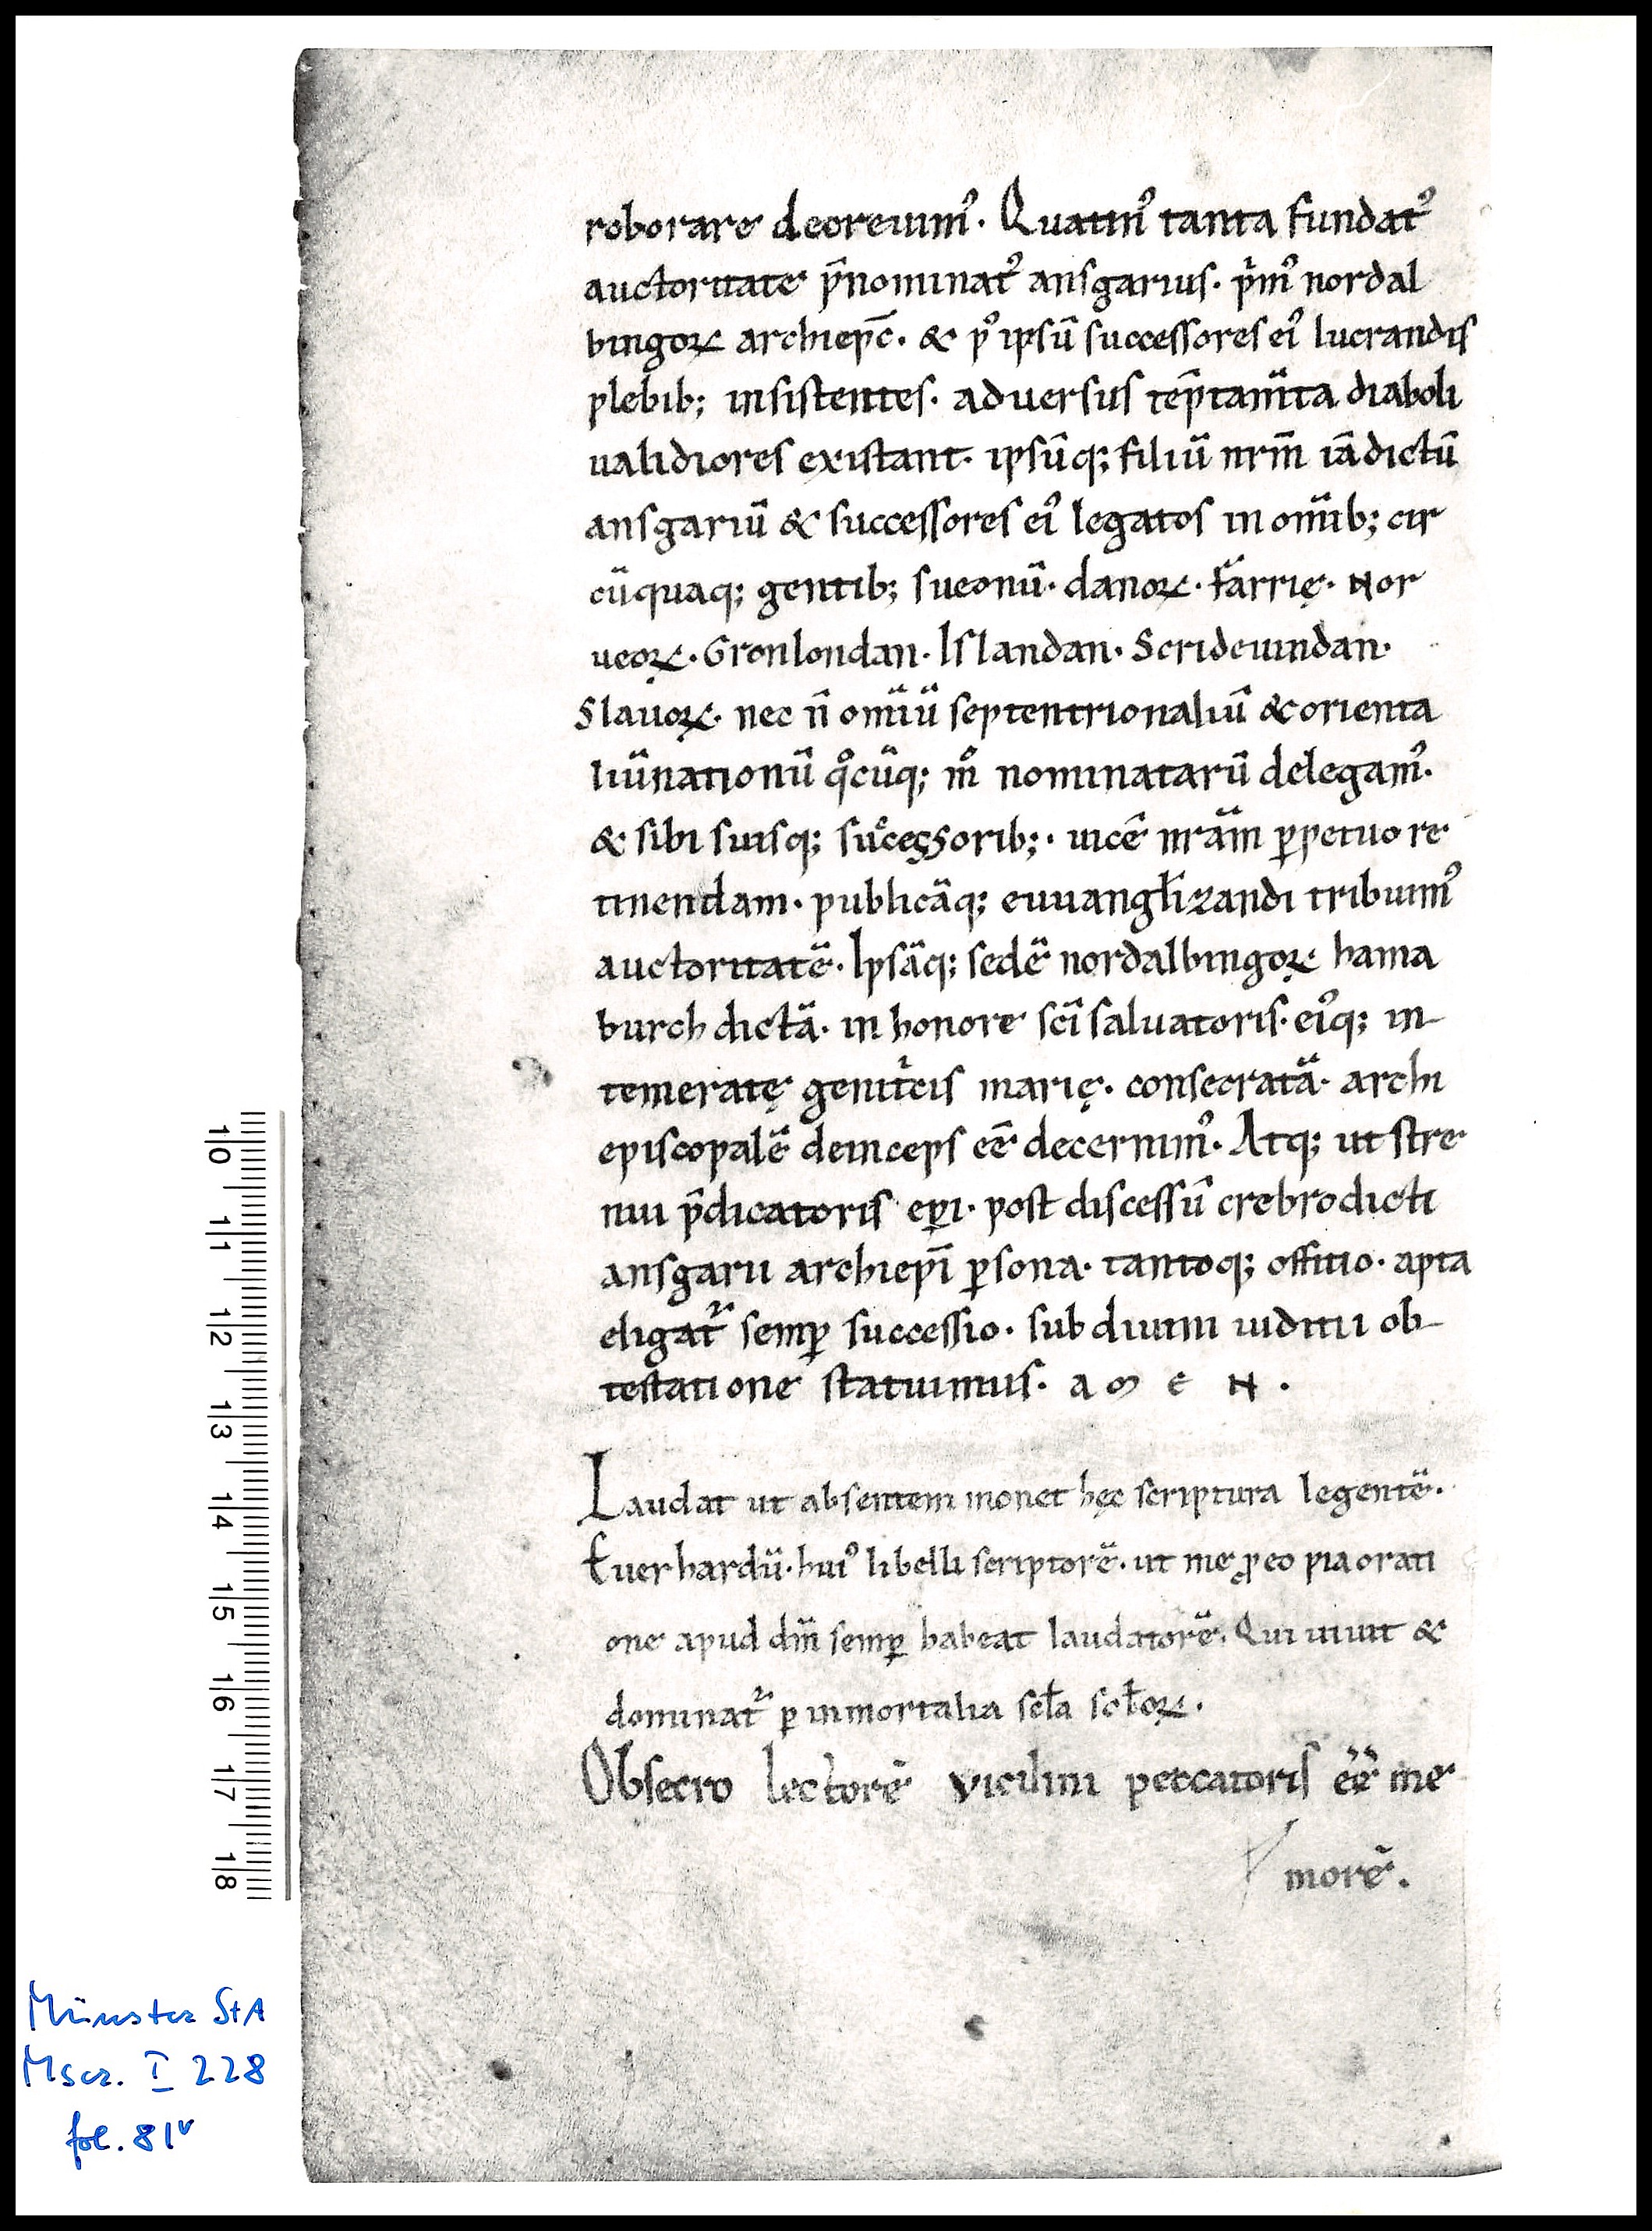 roborare decreuim᷒. Quatin᷒ tanta fundat᷒
auctoritate p̄nominat᷒ ansgarius. p̍m᷒ nordal
bingoꝝ archiep̄c. & p᷒ ipsū successores ei᷒ lucrandis
plebib; insistentes. aduersus tēptam̄ta diaboli
ualidiores existant. ipsūq; filiū nr̄m iā dictū
ansgariū & successores ei᷒ legatos in om̄ib; cir
cūquaq; gentib; sueonū. danoꝝ. farrię. Nor
ueoꝝ. Gronlondan. Islandan. Scrideuindan.
Slauoꝝ. nec n̄ om̄iū septentrionaliū & orienta
liū nationū qͦcūq; mͦ nominatarū delegam᷒.
& sibi suisq; sucͨęssorib;. uicē nr̄am ꝑpetuo re
tinendam. publicāq; euuangl̄izandi tribuim᷒
auctoritatē. Ipsāq; sedē nordalbingoꝝ hama
burch dictā. in honore sc̄i saluatoris. ei᷒q; in-
temeratę genit̍cis marię. consecratā. archi
episcopalē deinceps eē decernim᷒. Atq; ut stre
nui p̄dicatoris ep̄i. post discessū crebro dicti
ansgarii archiep̄i ꝑsona. tantoq; offitio. apta
eligat᷑ semꝑ successio. sub diuini iuditii ob-
testatione statuimus. a m e N.
Laudat ut absentem monet hęc scriptura legentē.
Euerhardū. hui᷒ libelli scriptorē. ut me ꝓ eo pia orati
one apud dn̄m semꝑ habeat laudatorē. Qui uiuit &
dominat᷑ ꝑ inmortalia scl̄a scl̄oꝝ.
Obsecro lectorē vicilini peccatoris eē me
morē.
1|0
1|1
1|2
1|3
1|4
1|5
1|6
1|7
1|8
Münster StA
Mscr. I 228
fol. 81v